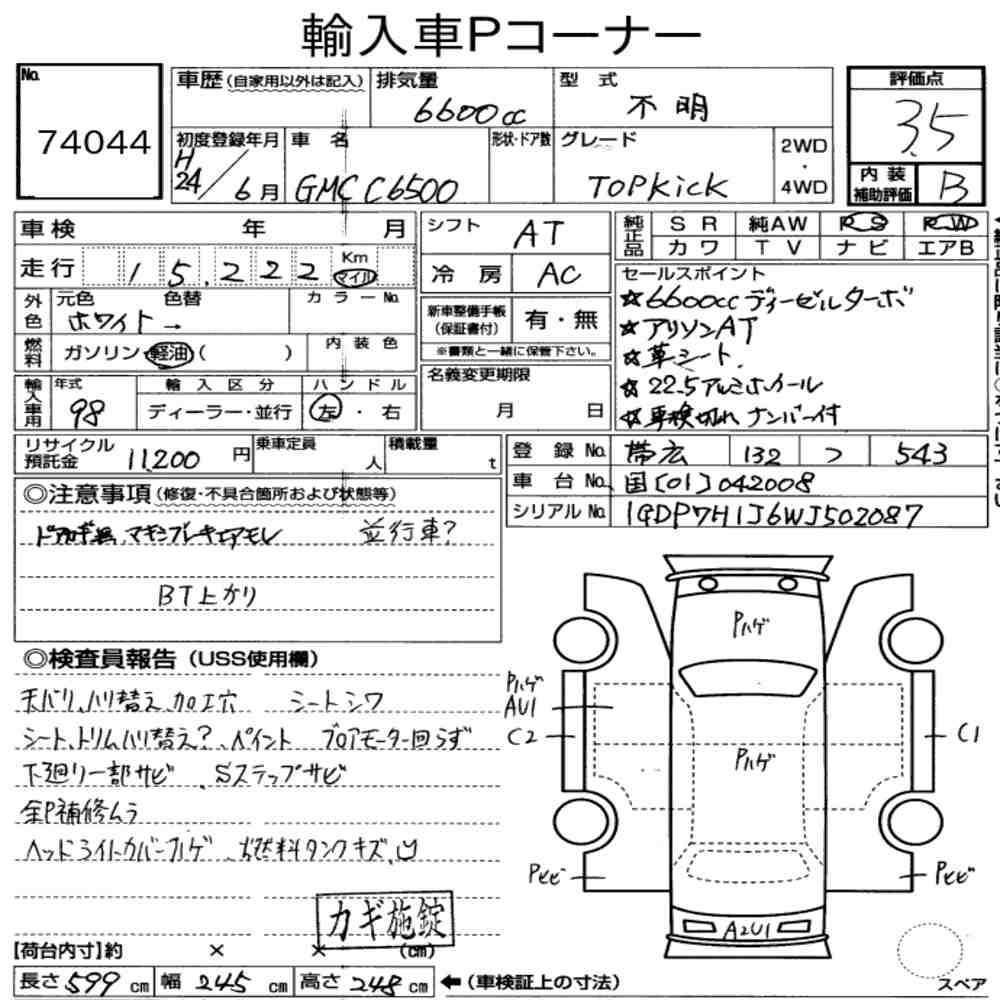 輸入車Pコーナー
No.
74044
車歴(自家用以外は記入)
排気量
6600cc
型式
不明
評価点
3.5
初度登録年月
H
24/6月
車名
GMC C6500
形状・ドア数
グレード
TOPKICK
2WD
・
4WD
内装
補助評価
B
車検 年 月
走行 15.222 Km
マイル
外色
元色 色替
ホワイト →
カラーNo.
燃料
ガソリン・軽油( )
内装色
輸入車用
年式
98
輸入区分
ディーラー・並行
ハンドル
左・右
シフト
AT
冷房
AC
新車整備手帳
(保証書付)
有・無
※書類と一緒に保管下さい。
名義変更期限
月 日
純正品
SR 純AW PS PW
カワ TV ナビ エアB
セールスポイント
☆6600ccディーゼルターボ
☆アリソンAT
☆革シート.
☆22.5アルミホイール
☆車検切れナンバー付
リサイクル
預託金 11,200円
乗車定員
人
積載量
t
登録No. 帯広 132 つ 543
車台No. 国[01]042008
シリアルNo. 1GDP7H1J6WJ502087
◎注意事項(修復・不具合箇所および状態等)
マキシブレーキエアモレ 並行車?
BT上がり
◎検査員報告(USS使用欄)
天バリ,ハリ替え,加工穴 シートシワ
シート,トリムハリ替え?,ペイント ブロアモーター回らず
下廻り一部サビ Sステップサビ
全P補修ムラ
ヘッドライトカバーハゲ 燃料タンクキズ,凹
カギ施錠
Pハゲ
Pハゲ
Pハゲ
AU1
C2
C1
Pヒビ
Pヒビ
A2U1
スペア
【荷台内寸】約 × × (cm)
長さ599cm 幅245cm 高さ248cm ←(車検証上の寸法)